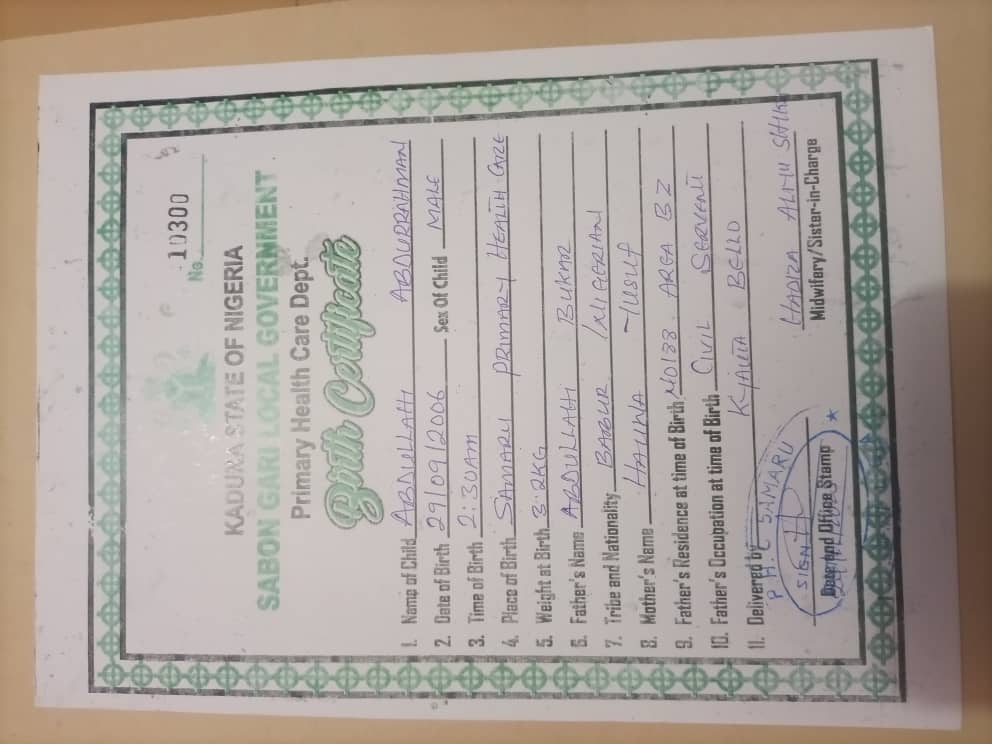 No. 10300
KADUNA STATE OF NIGERIA
SABON GARI LOCAL GOVERNMENT
Primary Health Care Dept.
Birth Certificate
1. Name of Child ABDULLAHI ABDURRAHMAN
2. Date of Birth 29/09/2006 Sex Of Child MALE
3. Time of Birth 2:30AM
4. Place of Birth SAMARU PRIMARY HEALTH CARE
5. Weight at Birth 3.2KG
6. Father's Name ABDULLAHI BUKAR
7. Tribe and Nationality BABUR /NIGERIAN
8. Mother's Name HAUWA YUSUF
9. Father's Residence at time of Birth NO133 AREA BZ
10. Father's Occupation at time of Birth CIVIL SERVANT
11. Delivered by KYAUTA BELLO
P.H.C SAMARU
SIGN
HADIZA ALIYU
Date and Office Stamp Midwifery/Sister-in-Charge